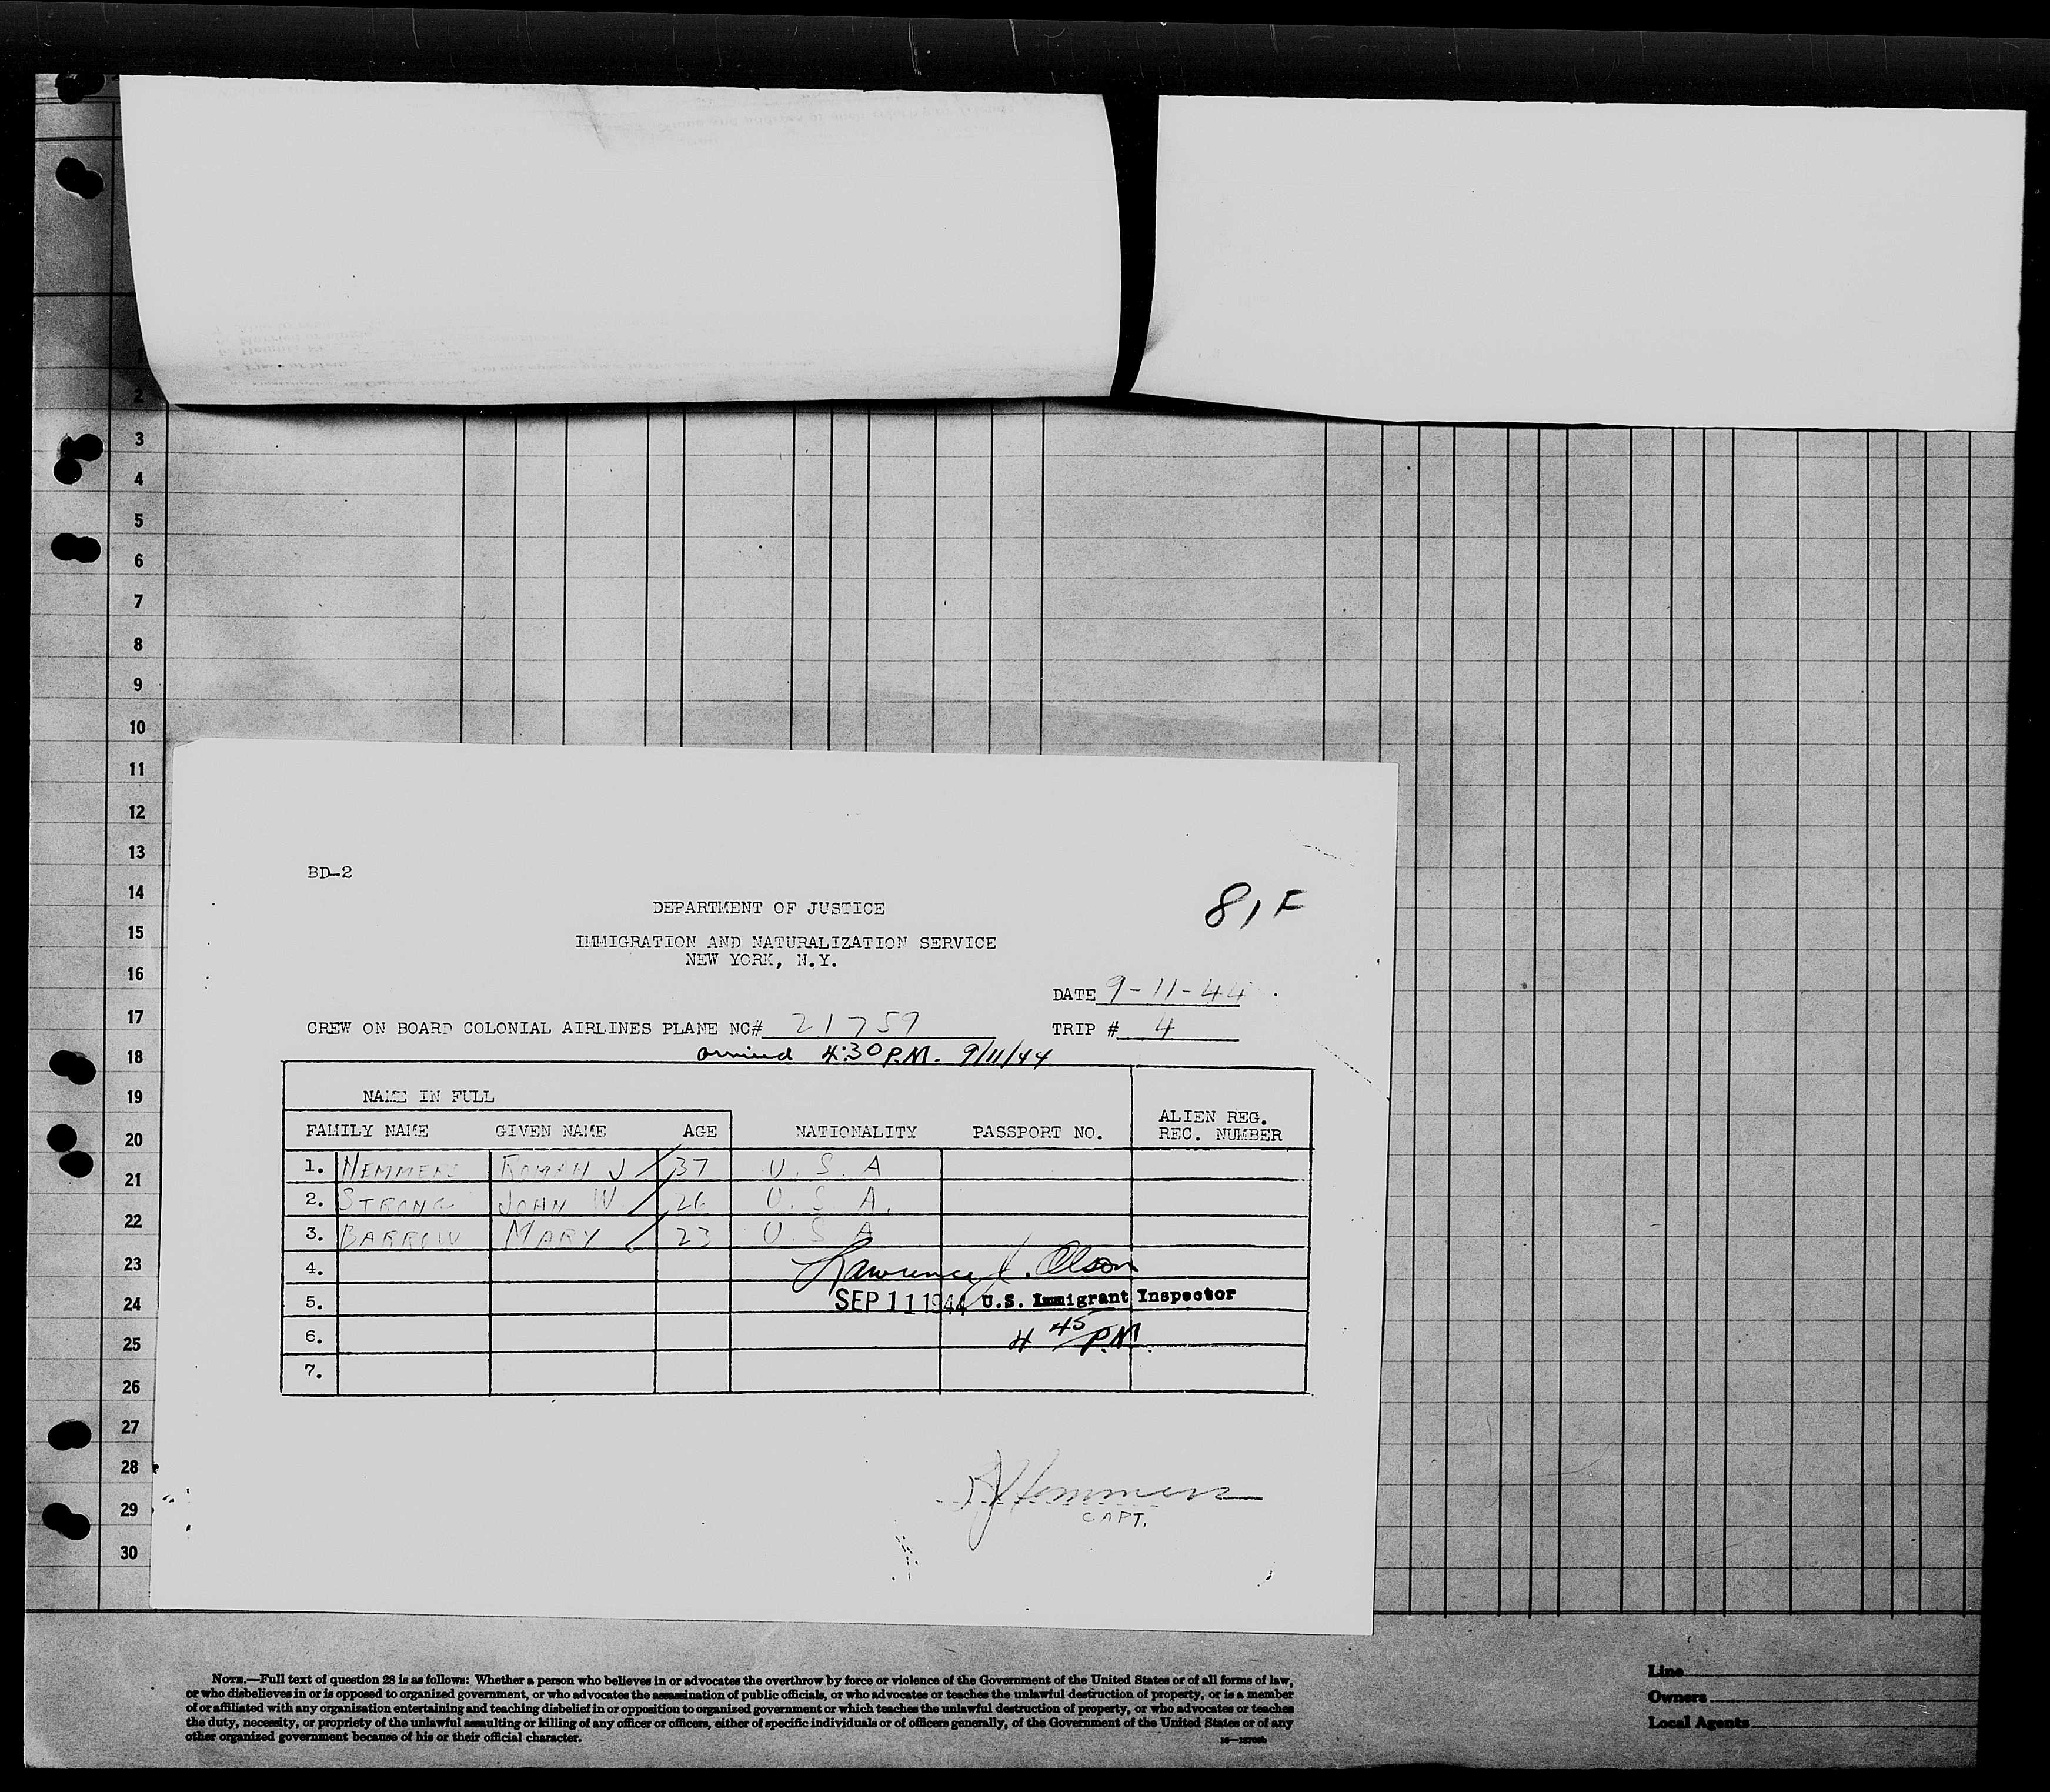 2
3
4
5
6
7
8
9
10
11
12
13
14
15
16
17
18
19
20
21
22
23
24
25
26
27
28
29
30
BD-2
81F
DEPARTMENT OF JUSTICE
IMMIGRATION AND NATURALIZATION SERVICE
NEW YORK, N.Y.
DATE 9-11-44
CREW ON BOARD COLONIAL AIRLINES PLANE NC# 21759 TRIP # 4
arrived 4:30 P.M. 9/11/44
NAME IN FULL
FAMILY NAME GIVEN NAME AGE NATIONALITY PASSPORT NO. ALIEN REG. REC. NUMBER
1. HEMMENS ROMAN J 37 U.S.A
2. STRONG JOHN W 26 U.S.A.
3. BARROW MARY 23 U.S.A
4. Lawrence J. Olson
5. SEP 11 1944 U.S. Immigrant Inspector
6. 4 45 P.M.
7.
RJHemmens
CAPT.
NOTE.—Full text of question 28 is as follows: Whether a person who believes in or advocates the overthrow by force or violence of the Government of the United States or of all forms of law,
or who disbelieves in or is opposed to organized government, or who advocates the assassination of public officials, or who advocates or teaches the unlawful destruction of property, or is a member
of or affiliated with any organization entertaining and teaching disbelief in or opposition to organized government or which teaches the unlawful destruction of property, or who advocates or teaches
the duty, necessity, or propriety of the unlawful assaulting or killing of any officer or officers, either of specific individuals or of officers generally, of the Government of the United States or of any
other organized government because of his or their official character.
Line
Owners
Local Agents